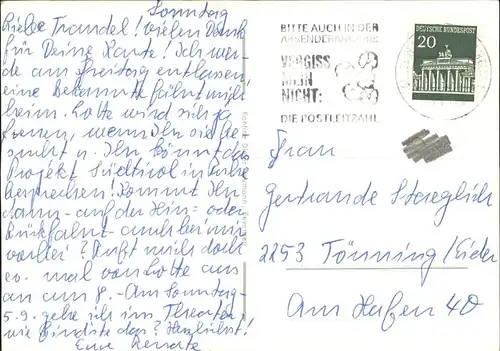 Sonntag
Liebe Traudel! Vielen Dank
für Deine Karte! Ich wer-
de am Freitag entlassen,
eine Bekannte fährt mich
heim. Lotte wird sich ja
freuen, wenn Ihr sie be-
sucht u. Ihr könnt das
Projekt Südtirol in Ruhe
besprechen! Kommt Ihr
dann - auf der Hin- oder
Rückfahrt - auch bei mir
vorbei? Ruft mich doch
ev. mal von Lotte aus
an am 8. - Am Sonntag -
5.9. gehe ich ins Theater,
wie findste das? Herzlichst!
Eure Renate
BITTE AUCH IN DER
ABSENDERANGABE
VERGISS
MEIN
NICHT:
DIE POSTLEITZAHL
DEUTSCHE BUNDESPOST
20
Frau
Gertraude Staeglich
2253 Tönning/Eider
Am Hafen 40